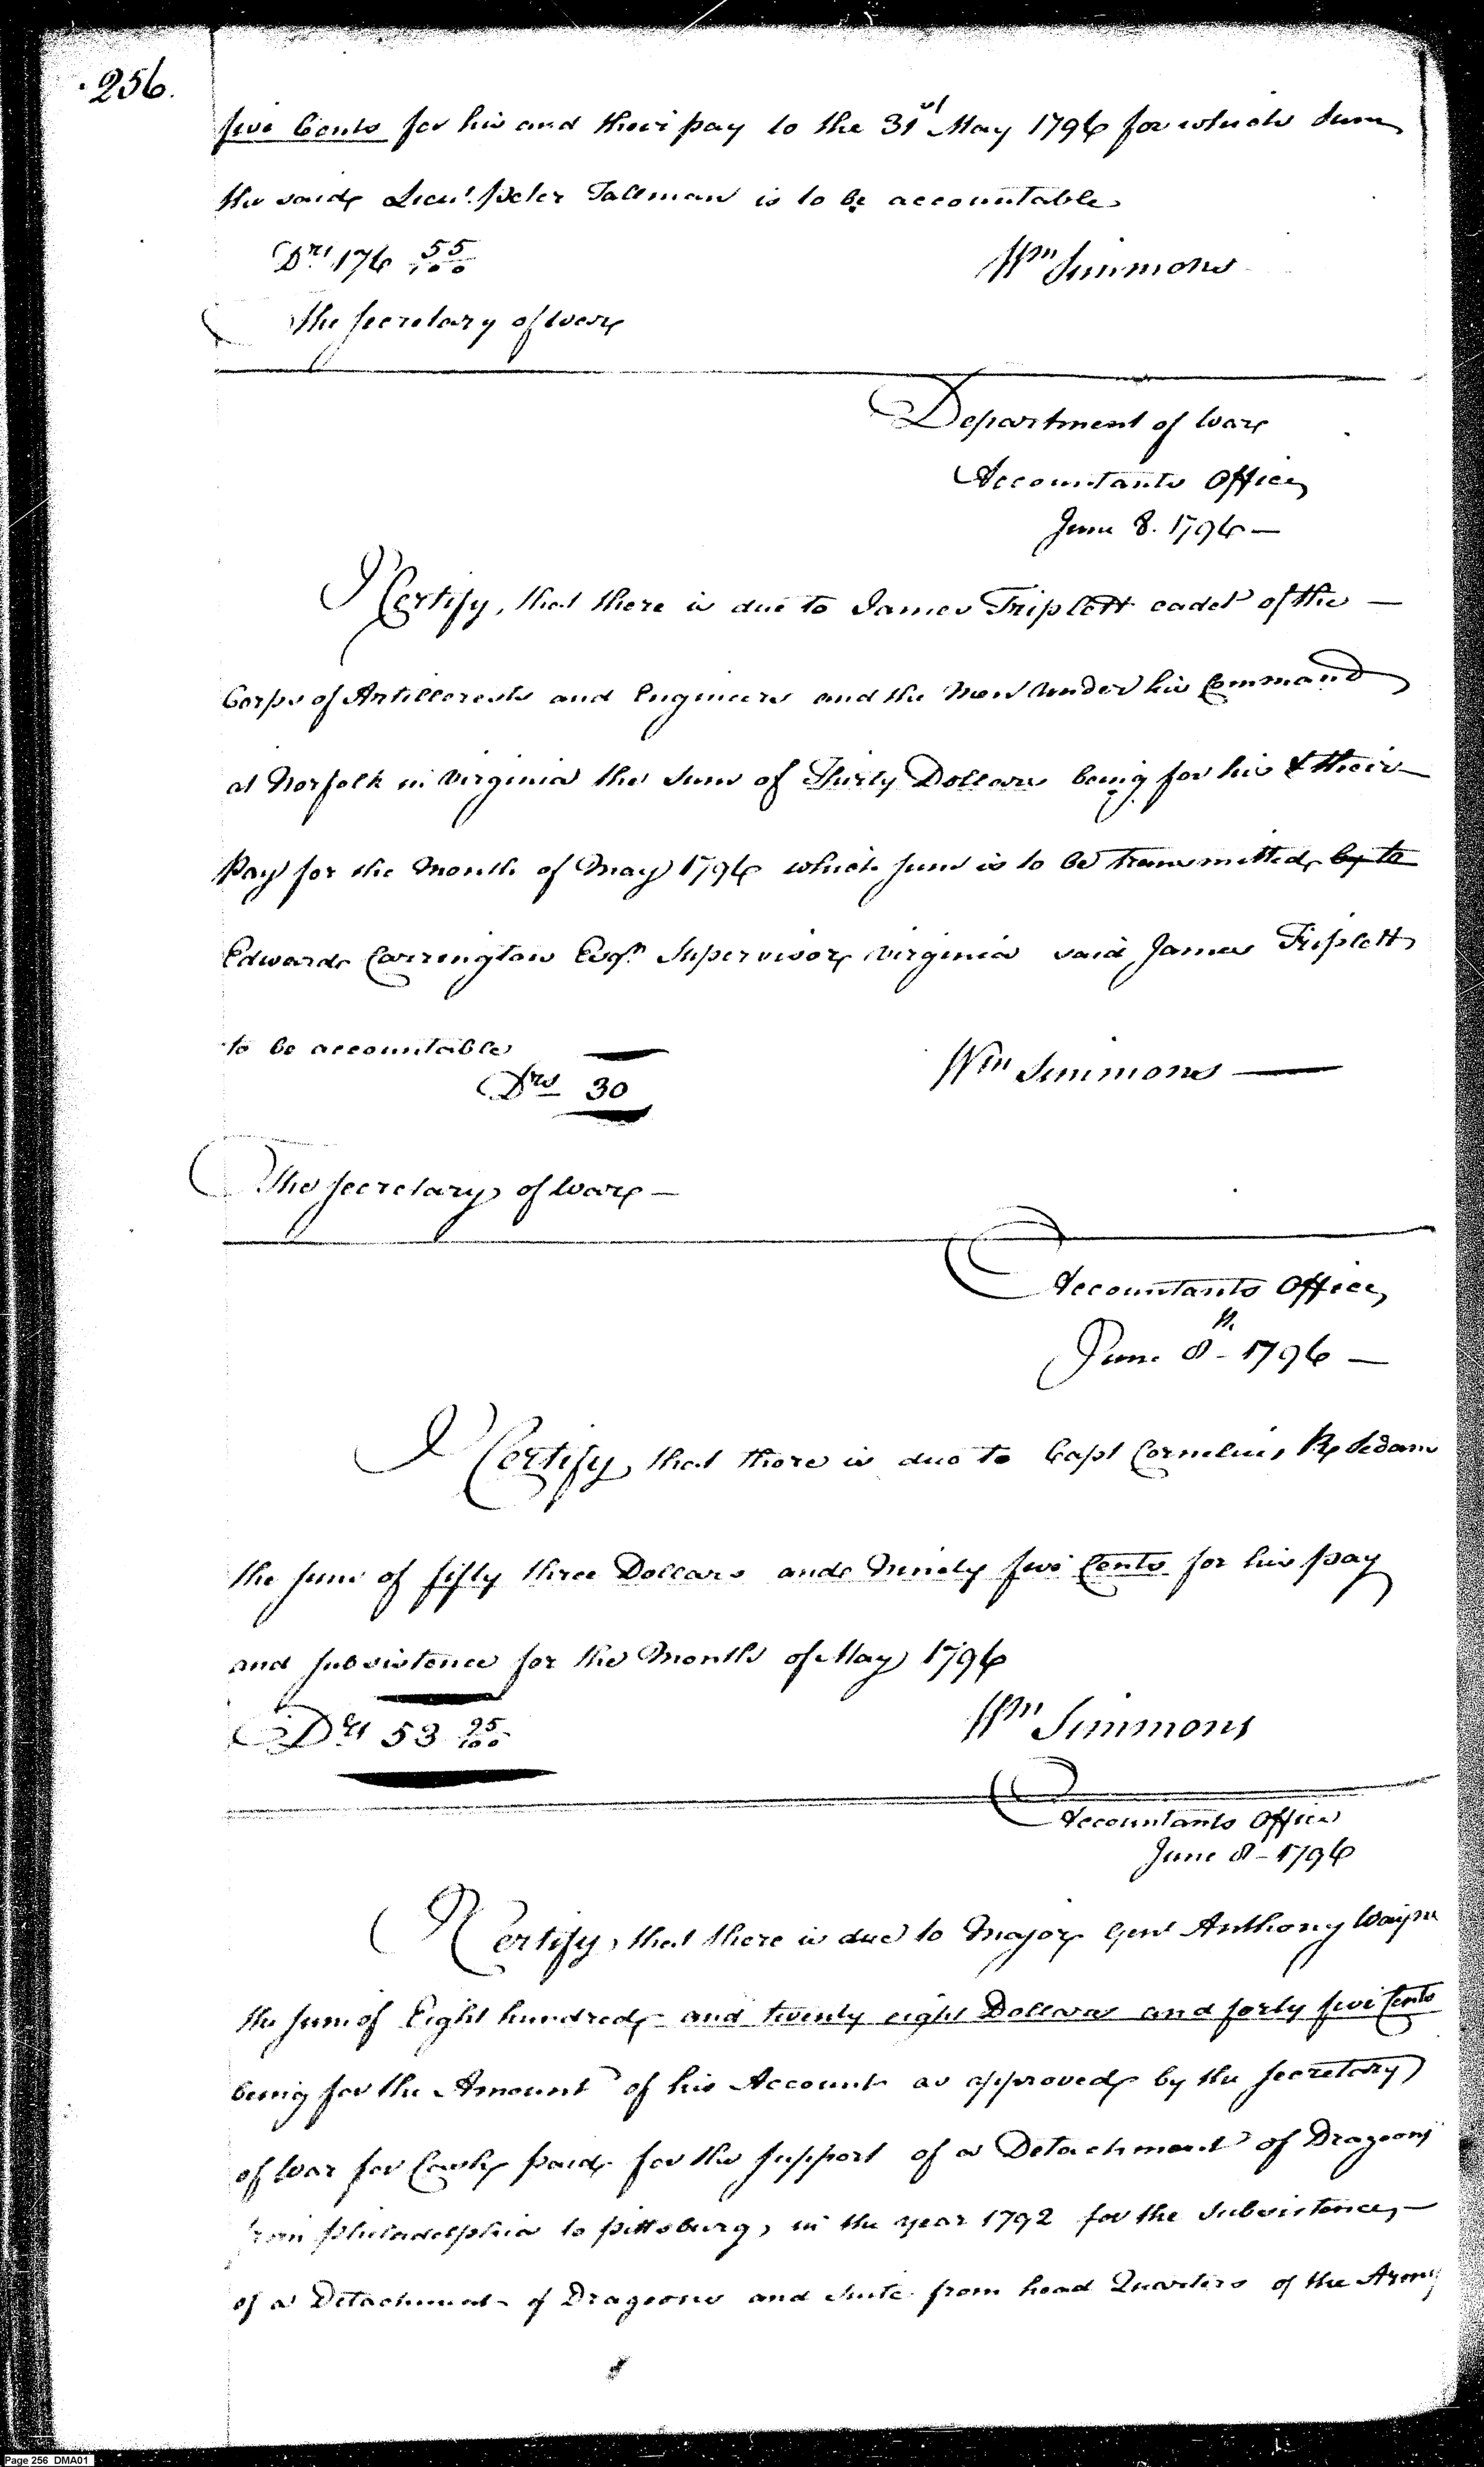 256.
five Cents for his and their pay to the 31st May 1796 for which sum
the said Lieut. Peter Tallman is to be accountable
Drs 176 55/100
Wm Simmons
The Secretary of War
Department of War
Accountants Office
June 8. 1796 —
I Certify, that there is due to James Triplett cadet of the —
Corps of Artillerests and Engineers and the Men under his Command
at Norfolk in Virginia the Sum of Thirty Dollars being for his & their
Pay for the Month of May 1796 which sum is to be transmitted by to
Edward Carrington Esqr. Supervisor Virginia said James Triplett
to be accountable
Drs 30
Wm Simmons —
The Secretary of War —
Accountants Office
June 8th 1796 —
I Certify, that there is due to Capt Cornelius R Sedam
the sum of fifty three Dollars and Ninety five Cents for his pay
and subsistence for the Month of May 1796
Drs 53 95/100
Wm Simmons
Accountants Office
June 8 - 1796
I Certify, that there is due to Major Genl Anthony Wayne
the sum of Eight hundred and twenty eight Dollars and forty five Cents
being for the Amount of his Account as approved by the Secretary
of War for Cash paid for the support of a Detachment of Dragoons
from Philadelphia to pittsburg, in the year 1792 for the Subsistence, —
of a Detachment of Dragoons and suite from head Quarters of the Army
Page 256 DMA01